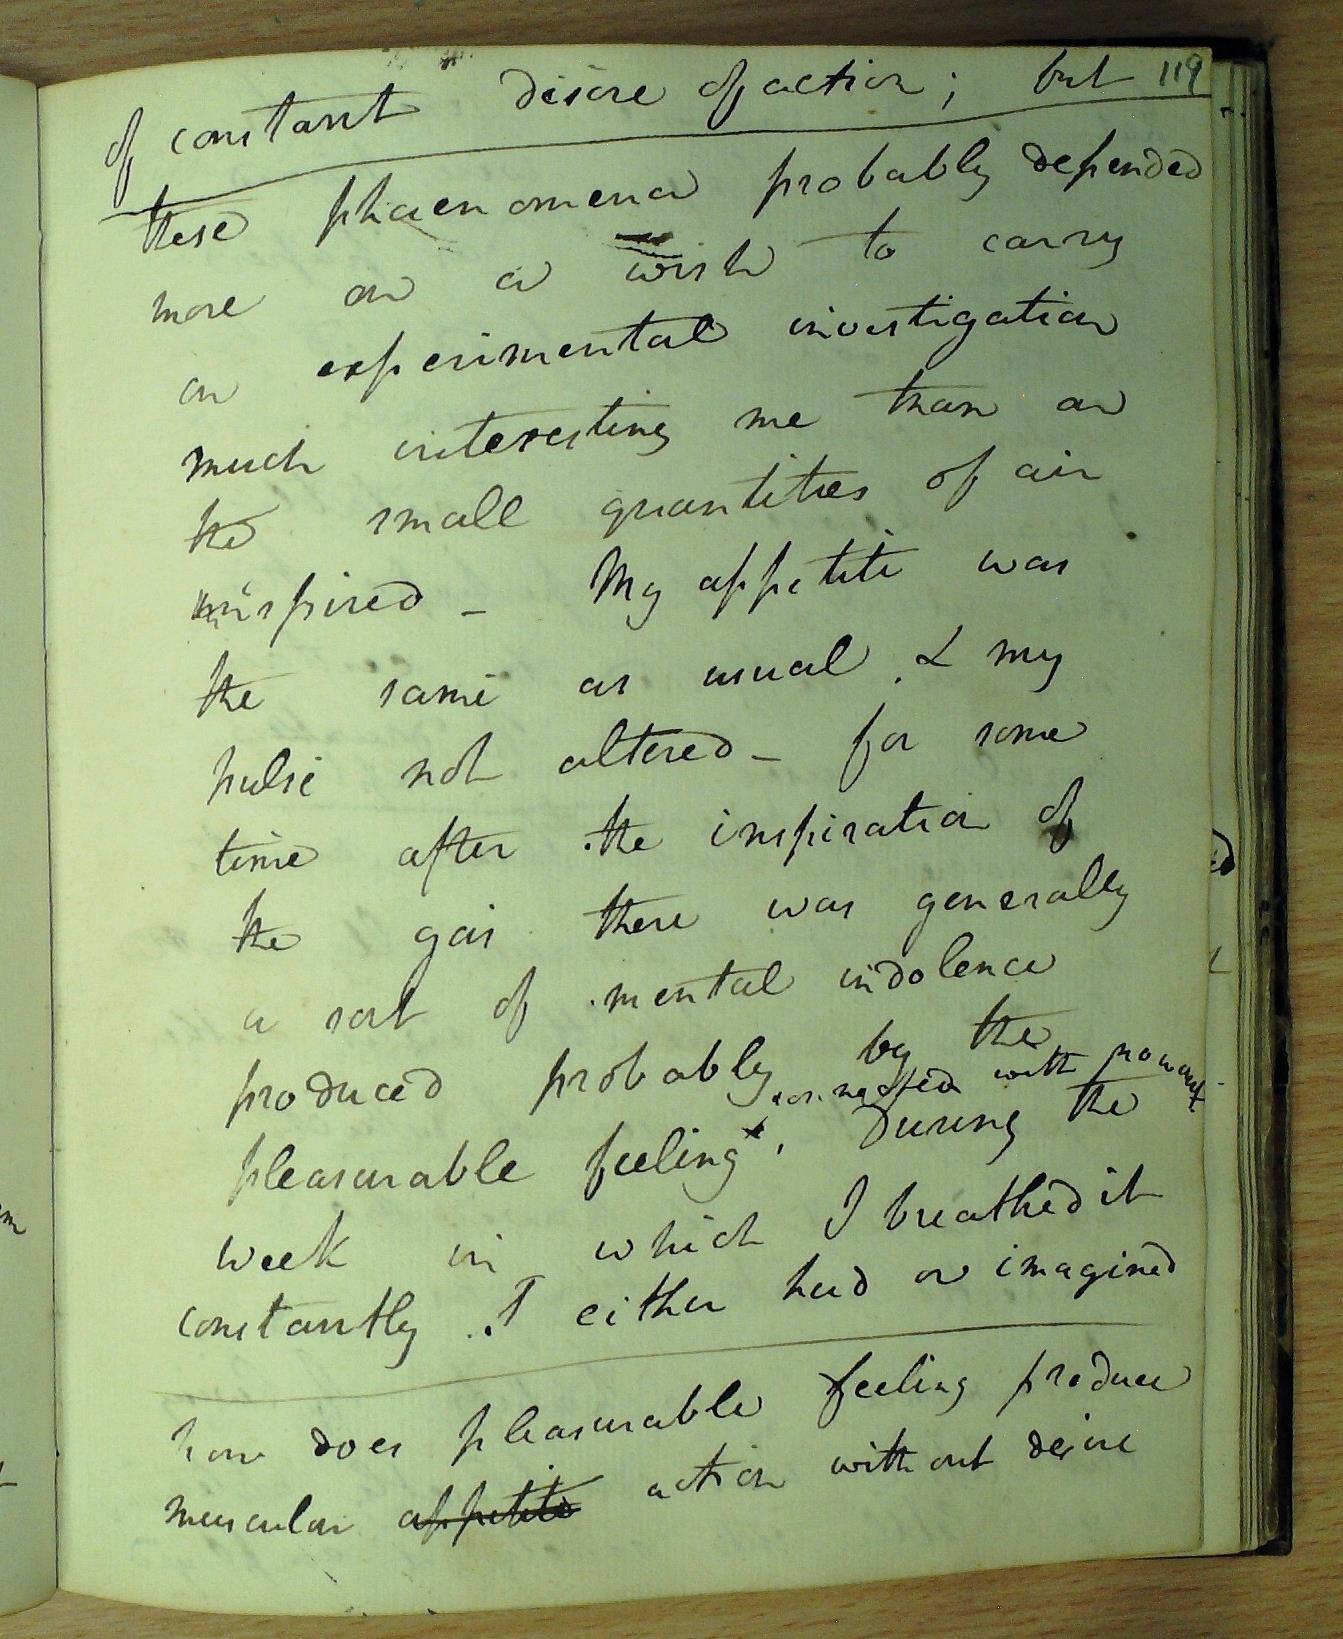 119
of constant desire of action; but
these phaenomena probably depended
more on a wish to carry
on experimental investigation
much interesting me than on
the small quantities of air
inspired _ My appetite was
the same as usual. & my
pulse not altered _ for some
time after the inspiration of
the gas there was generally
a sort of mental indolence
produced probably by the
connected with no want
pleasurable feeling x. During the
week in which I breathed it
constantly. I either had or imagined
how does pleasurable feeling produce
muscular appetite action without desire